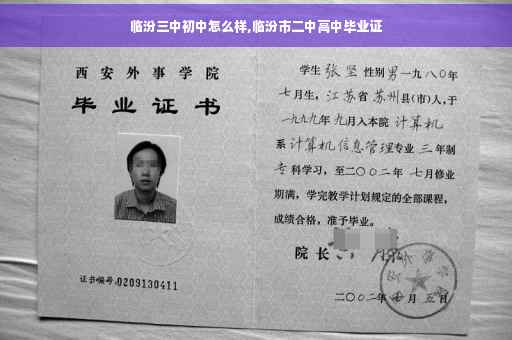 临汾三中初中怎么样,临汾市二中高中毕业证
西安外事学院
毕业证书
证书编号:0209130411
学生 张坚 性别 男 一九八〇年
七月生, 江苏省 苏州县(市)人,于
一九九九年 九月入本院 计算机
系 计算机信息管理专业 三 年制
专科学习, 至二〇〇二年 七月修业
期满, 学完教学计划规定的全部课程,
成绩合格, 准予毕业。
院长
二〇〇二年 月 五日